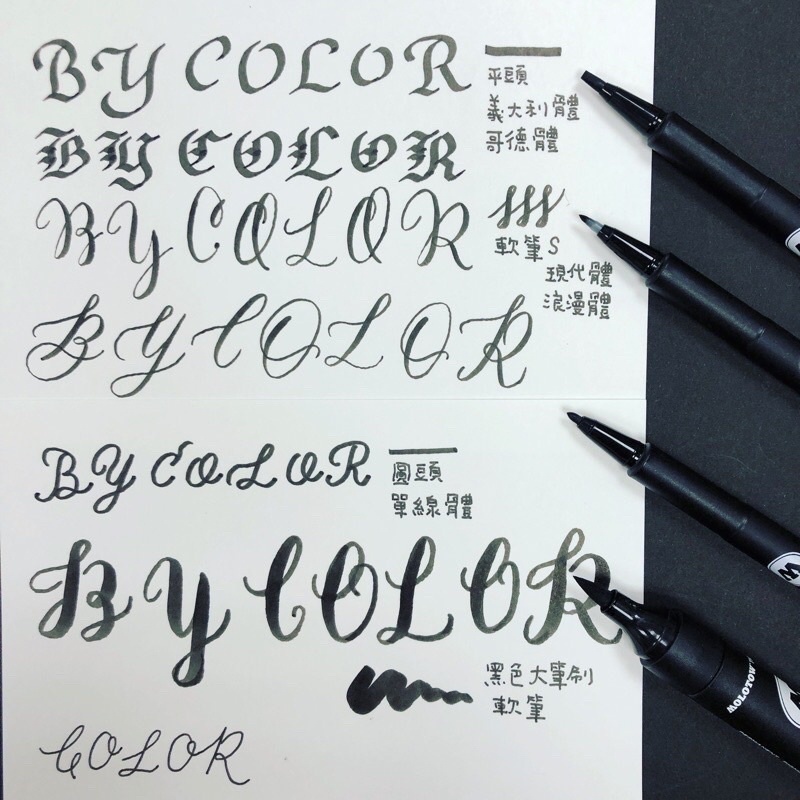 BY COLOR
平頭
義大利體
哥德體
BY COLOR
BY COLOR
軟筆S
現代體
浪漫體
BY COLOR
BY COLOR
圓頭
單線體
BY COLOR
黑色大筆刷
軟筆
COLOR
MOLOTOW